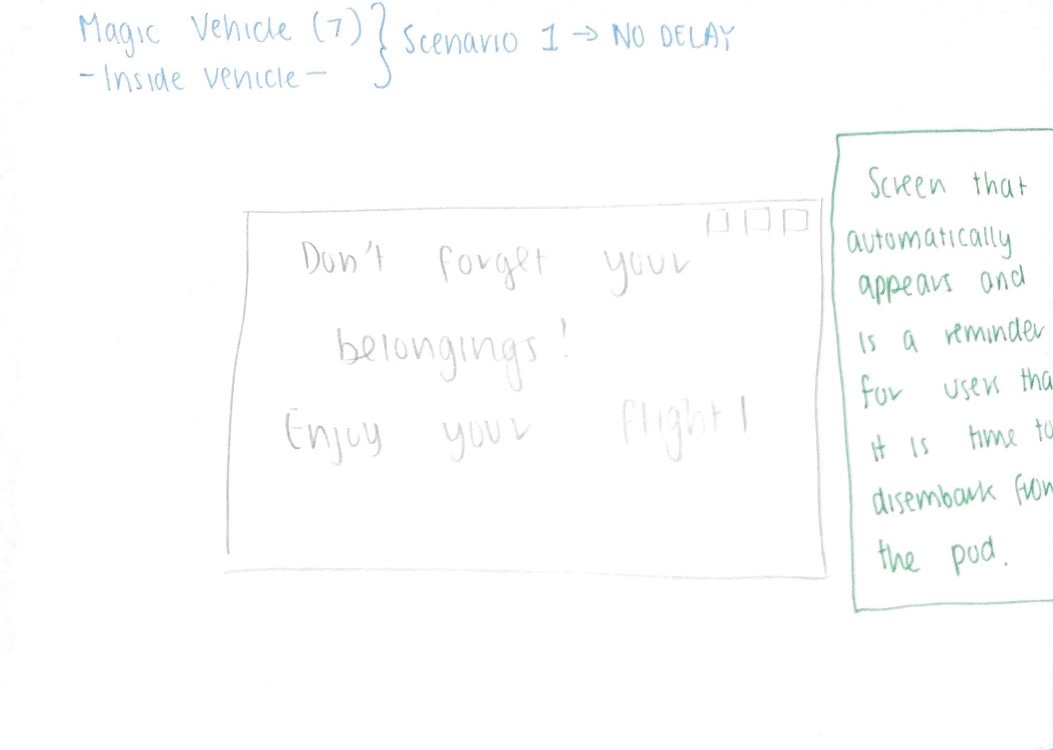 Magic Vehicle (7) } Scenario 1 → NO DELAY
- Inside vehicle -
Don't forget your
belongings!
Enjoy your flight!
Screen that
automatically
appears and
is a reminder
for users tha
it is time to
disembark from
the pod.